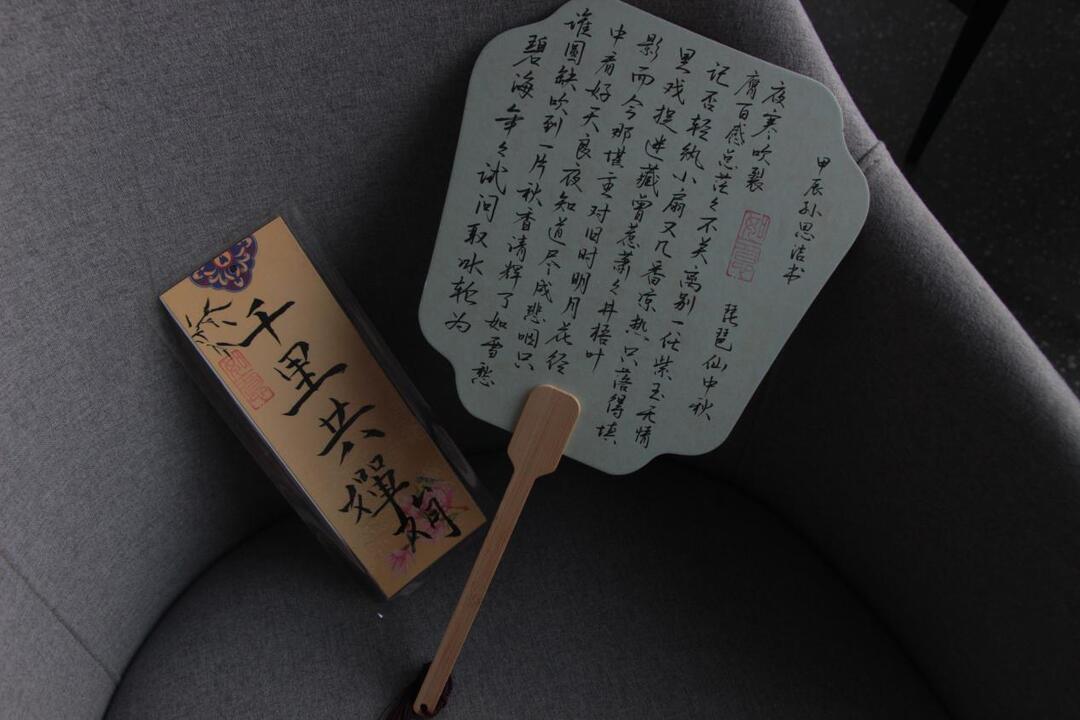 千里共婵娟
碧海年々试问取冰轮为
谁圆缺吹到一片秋香清辉了如雪愁
中看好天良夜知道尽成悲咽只
影而今那堪重对旧时明月花径
里戏捉迷藏曾惹萧々井梧叶
记否轻纨小扇又几番凉热只落得填
膺百感总茫々不关离别一任紫玉无情
夜寒吹裂
琵琶仙中秋
甲辰孙思洁书